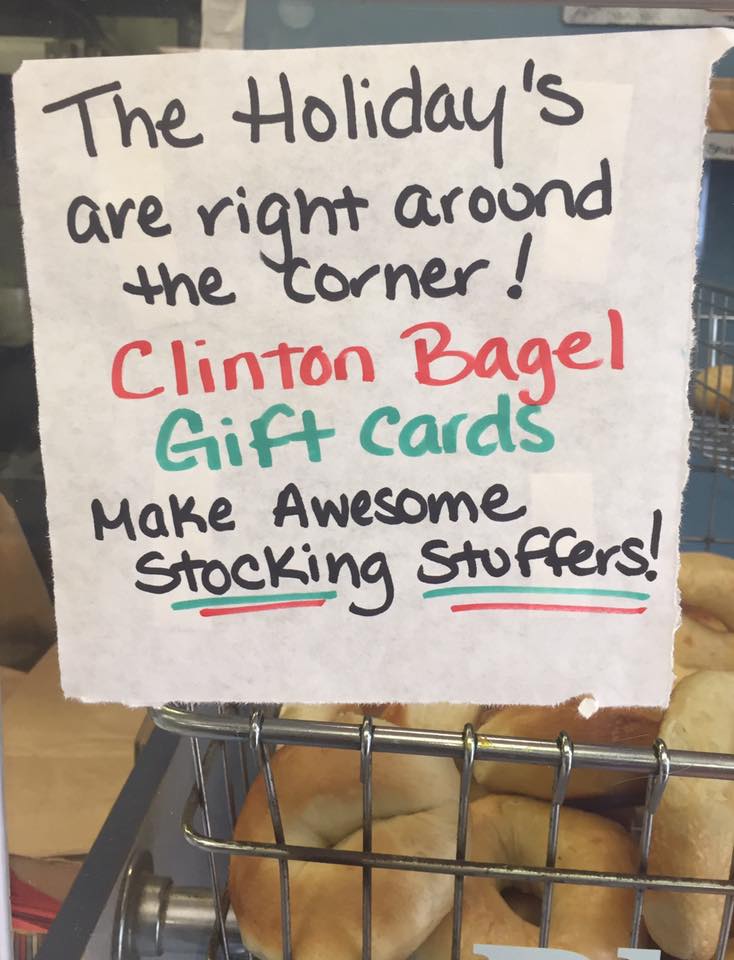 The Holiday's
are right around
the corner!
Clinton Bagel
Gift Cards
Make Awesome
Stocking Stuffers!